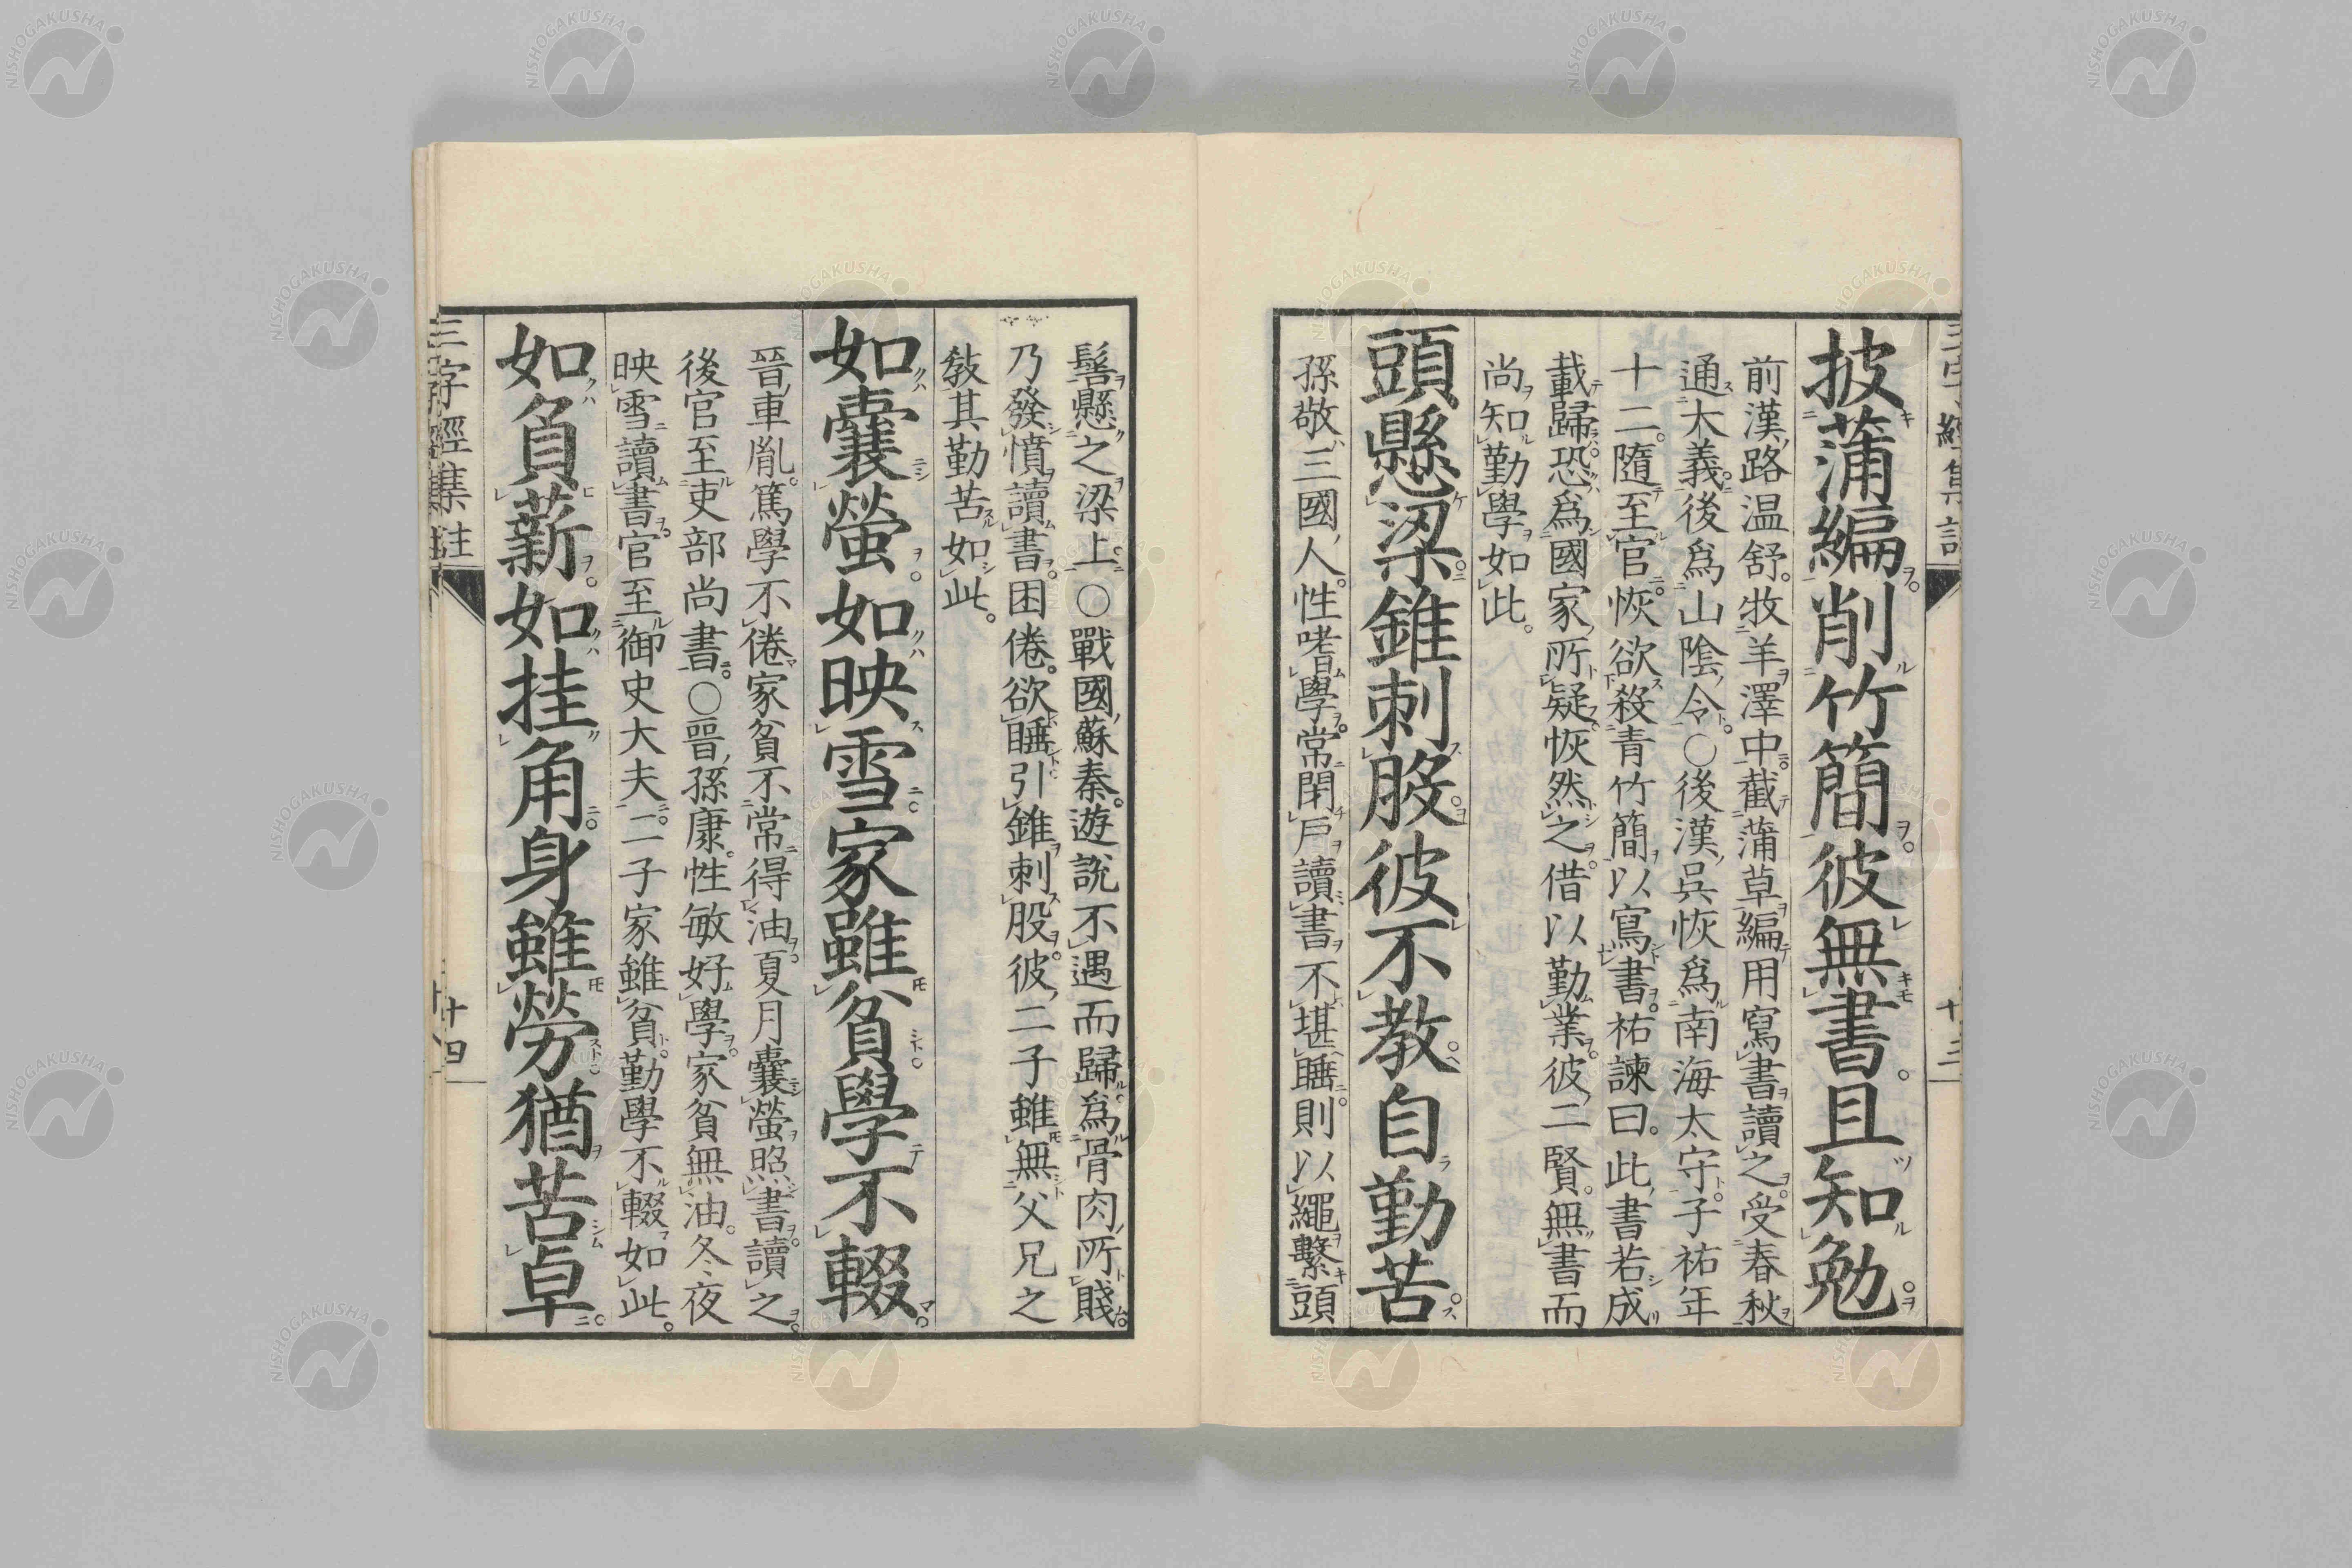 披蒲編削竹簡彼無書且知勉
前漢路温舒牧羊澤中截蒲草編用寫書讀之受春秋
通大義後爲山陰令○後漢吳恢爲南海太守子祐年
十二隨至官恢欲殺青竹簡以寫書祐諫曰此書若成
載歸恐爲國家所疑恢然之借以勤業彼二賢無書而
尚知勤學如此
頭懸梁錐刺股彼不教自勤苦
孫敬三國人性嗜學常閉戶讀書不堪睡則以繩繫頭
髻懸之梁上○戰國蘇秦遊說不遇而歸爲骨肉所賤
乃發憤讀書困倦欲睡引錐刺股彼二子雖無父兄之
敎其勤苦如此
如囊螢如映雪家雖貧學不輟
晉車胤篤學不倦家貧不常得油夏月囊螢照書讀之
後官至吏部尚書○晉孫康性敏好學家貧無油冬夜
映雪讀書官至御史大夫二子家雖貧勤學不輟如此
如負薪如挂角身雖勞猶苦卓
三字經集註
十四
NISHOGAKUSHA